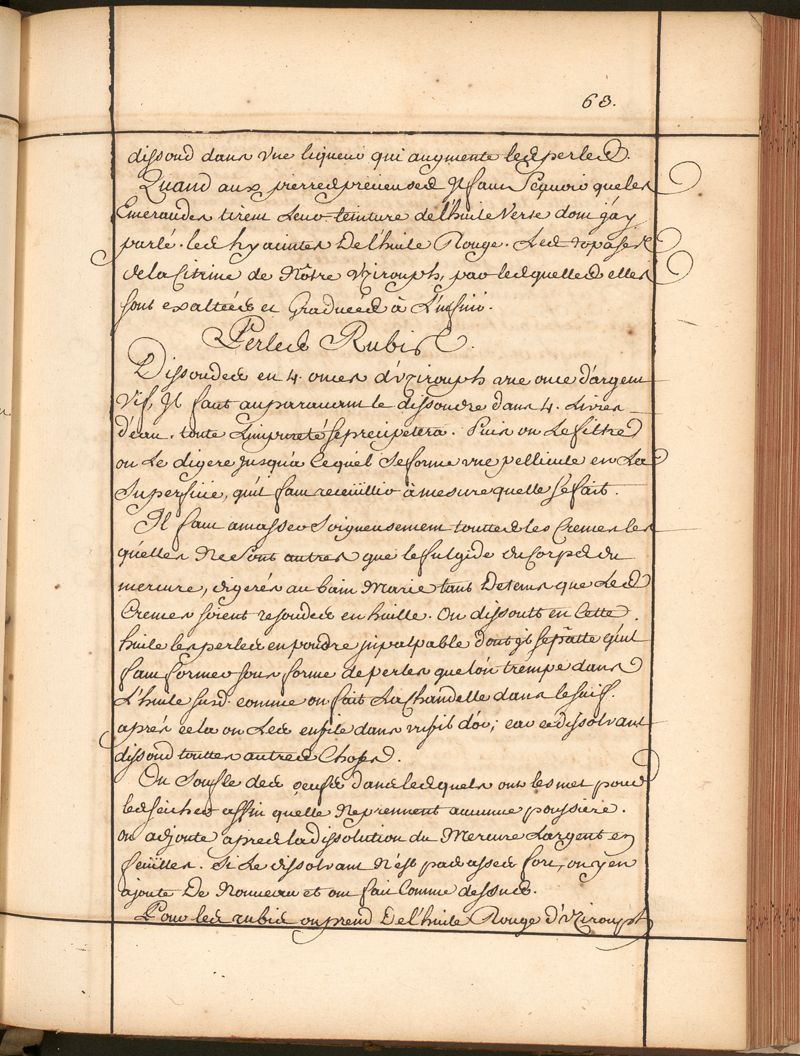 63.
dissoud dans vne liqueur qui augmente les perles.
Quand aux pierres precieuses Il faut sçauoir que les
Emeraudes tirent leur teinture de l'huile Verte dont j'ay
parlé. les hyacintes De l'huile Rouge. Les topases
de la Citrine de Nôtre Vzirouph, par lesquelles elles
sont exaltées et Graduées à L'infini.
Perles Rubis.
Dissoudes en 4. onces d'Vzirouph vne once d'argent
Vif, Il faut auparauant le dissoudre dans 4. Livres
d'eau. toute L'impureté se precipetera. Puis on Le filtre
on Le digere jusqu'a lequel se forme vne pellicule en La
Superficie, qu'il faut receüillir à mesure quelle se fait.
Il faut amasser Soigneusement touttes les Cremes les
quelles Ne sont autres que le fulgide du Corps du
mercure, digerés au bain Marie tant De tems que Les
Cremes soient resoudes en huille. On dissoutt en Cette
huile les perles en poudre jnpalpable dont qu'il
faut former sous forme de perles que lón trempe dans
L'huile susd. comme on fait La Chandelle dans le suif.
aprés cela on Les enfile dans vn fil d'or; car ce dissolvant
dissoud touttes autres Choses.
On Soufle des oeufs dans lesquels ont les met pour
les seicher affin quélle Ne prennent aucunne poussiere.
on adjoute apres la dissolution du Mercure Largent en
feüilles. Si Le dissolvant N'est pas asses fort, on y en
ajoute De Nouueau et om fait Comme dessus.
Pour les rubis on prend De l'huile Rouge d'Vzirouph